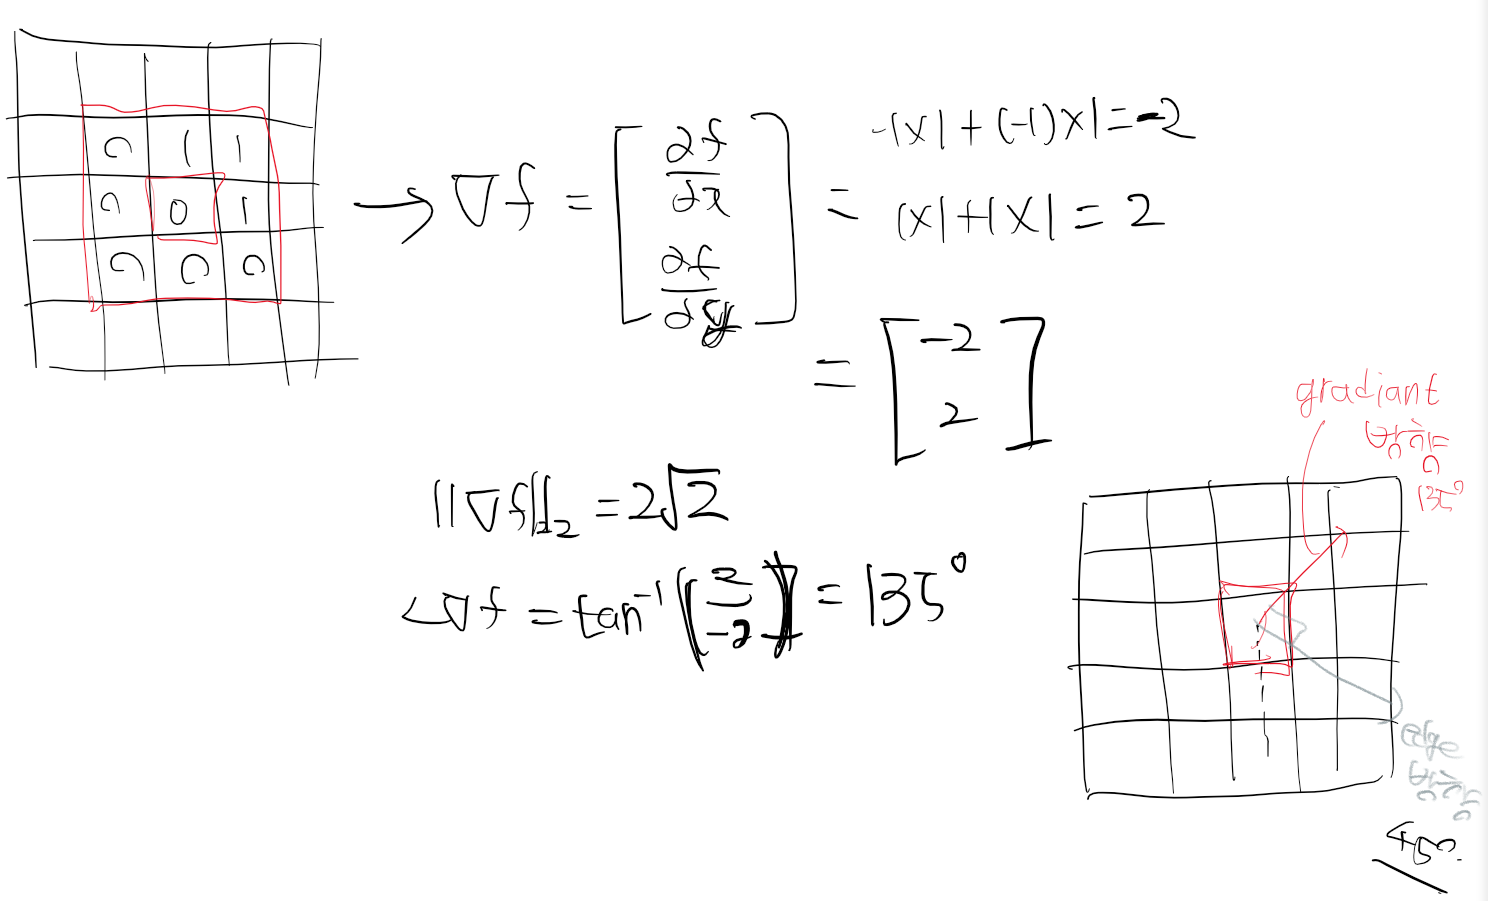 0 1 1
0 0 1
0 0 0
→ ∇f = [ ∂f/∂x ∂f/∂y ] = -1×1+(-1)×1=-2
1×1+1×1=2
= [ -2 2 ]
||∇f||₂ = 2√2
∠∇f = tan⁻¹(2/-2) = 135°
gradiant
방향은
135°
edge
방향
45°.